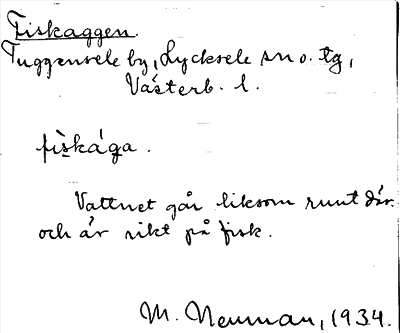 Fiskaggen.
Tuggensele by, Lycksele sn o. tg,
Västerb. l.
fiskága.
Vattnet går liksom runt där
och är rikt på fisk.
M. Neuman, 1934.